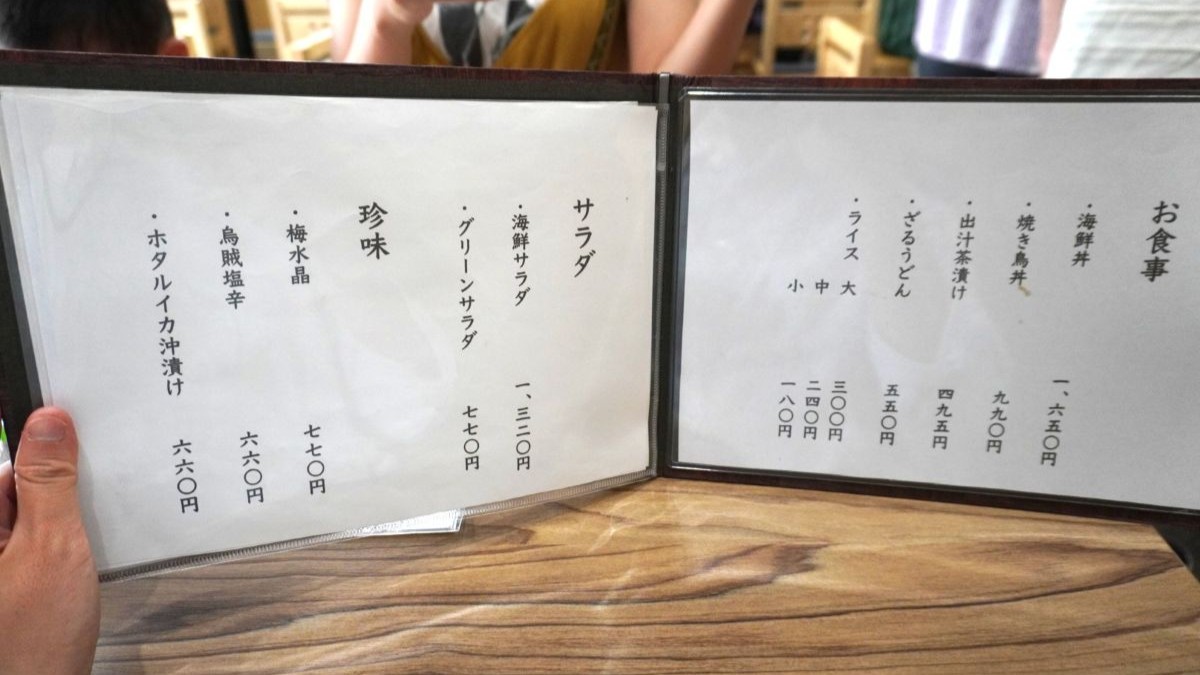 お食事
・海鮮丼 一、六五〇円
・焼き鳥丼 九九〇円
・出汁茶漬け 四九五円
・ざるうどん 五五〇円
・ライス 大 三〇〇円
中 二四〇円
小 一八〇円
サラダ
・海鮮サラダ 一、三二〇円
・グリーンサラダ 七七〇円
珍味
・梅水晶 七七〇円
・烏賊塩辛 六六〇円
・ホタルイカ沖漬け 六六〇円